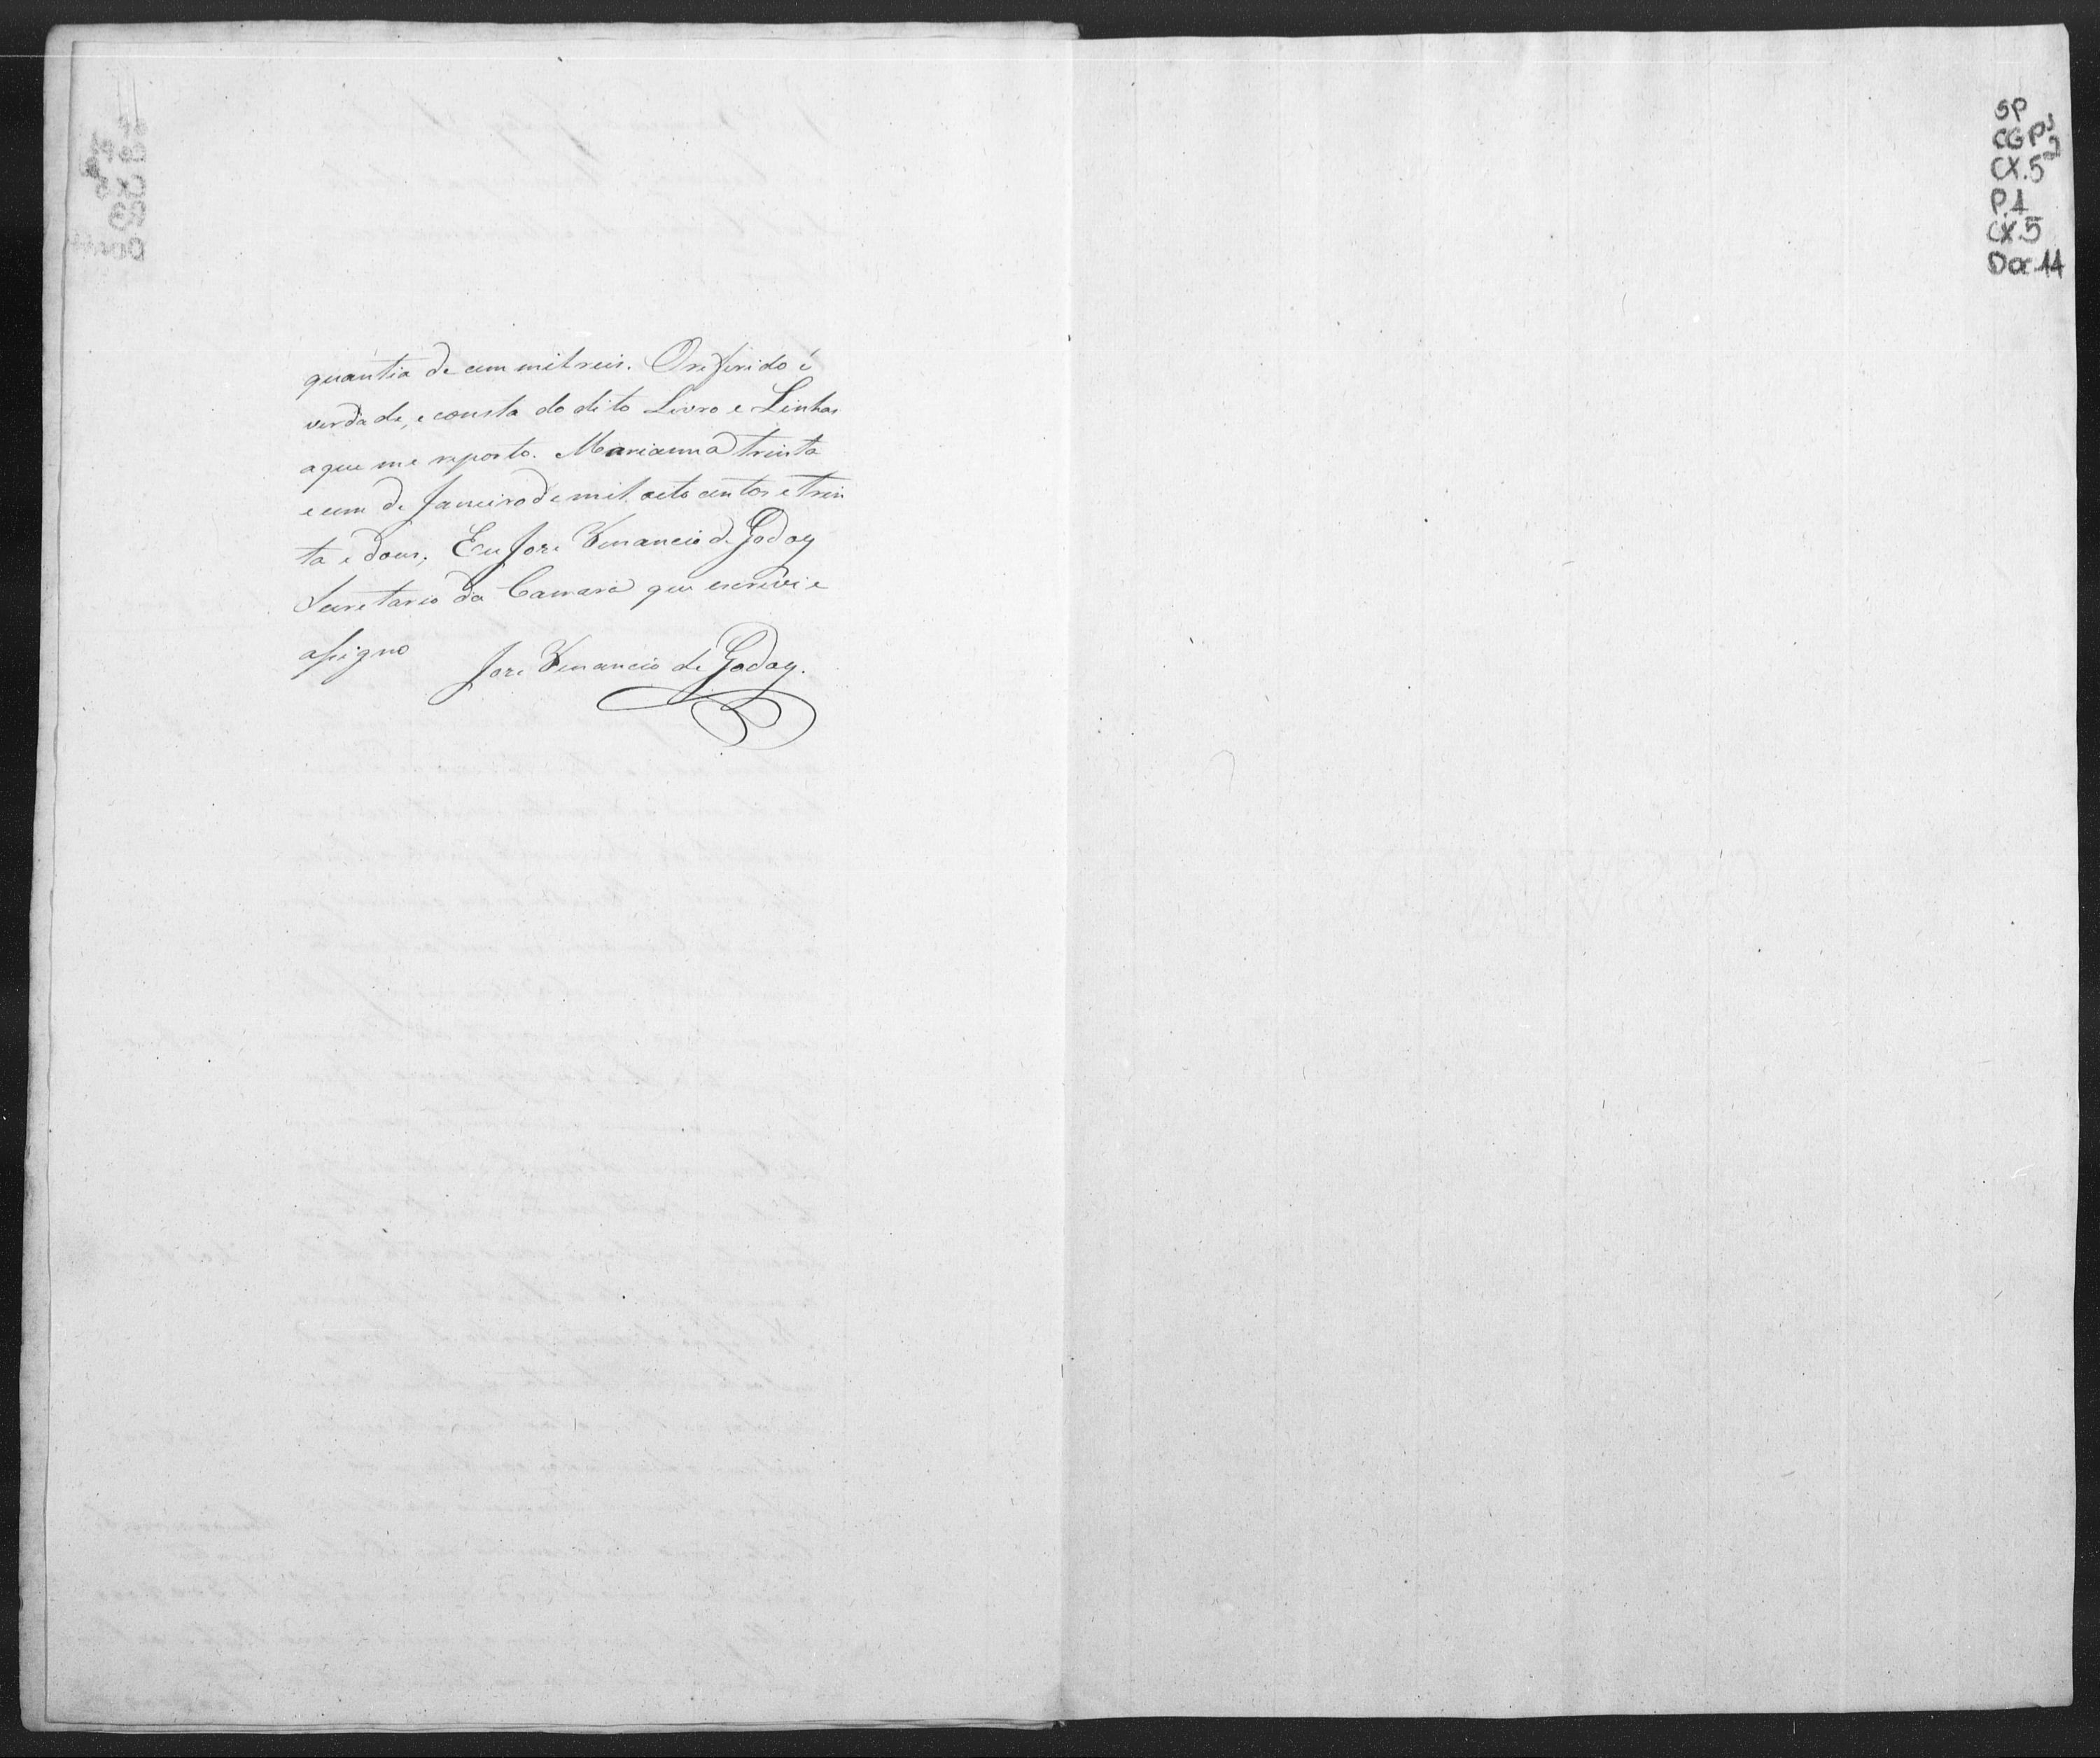 quantia de cem mil reis. O referido é
verdade, e consta do dito Livro e Linhas
a que me reporto. Marianna trinta
e um de Janeiro de mil oito centos e trin
ta e dous, Eu Joze Venancio de Godoy
Secretario da Camara que escrevi e
assigno
Joze Venancio de Godoy.
SP
CGP
CX.5
P.1
CX.5
Doc.14